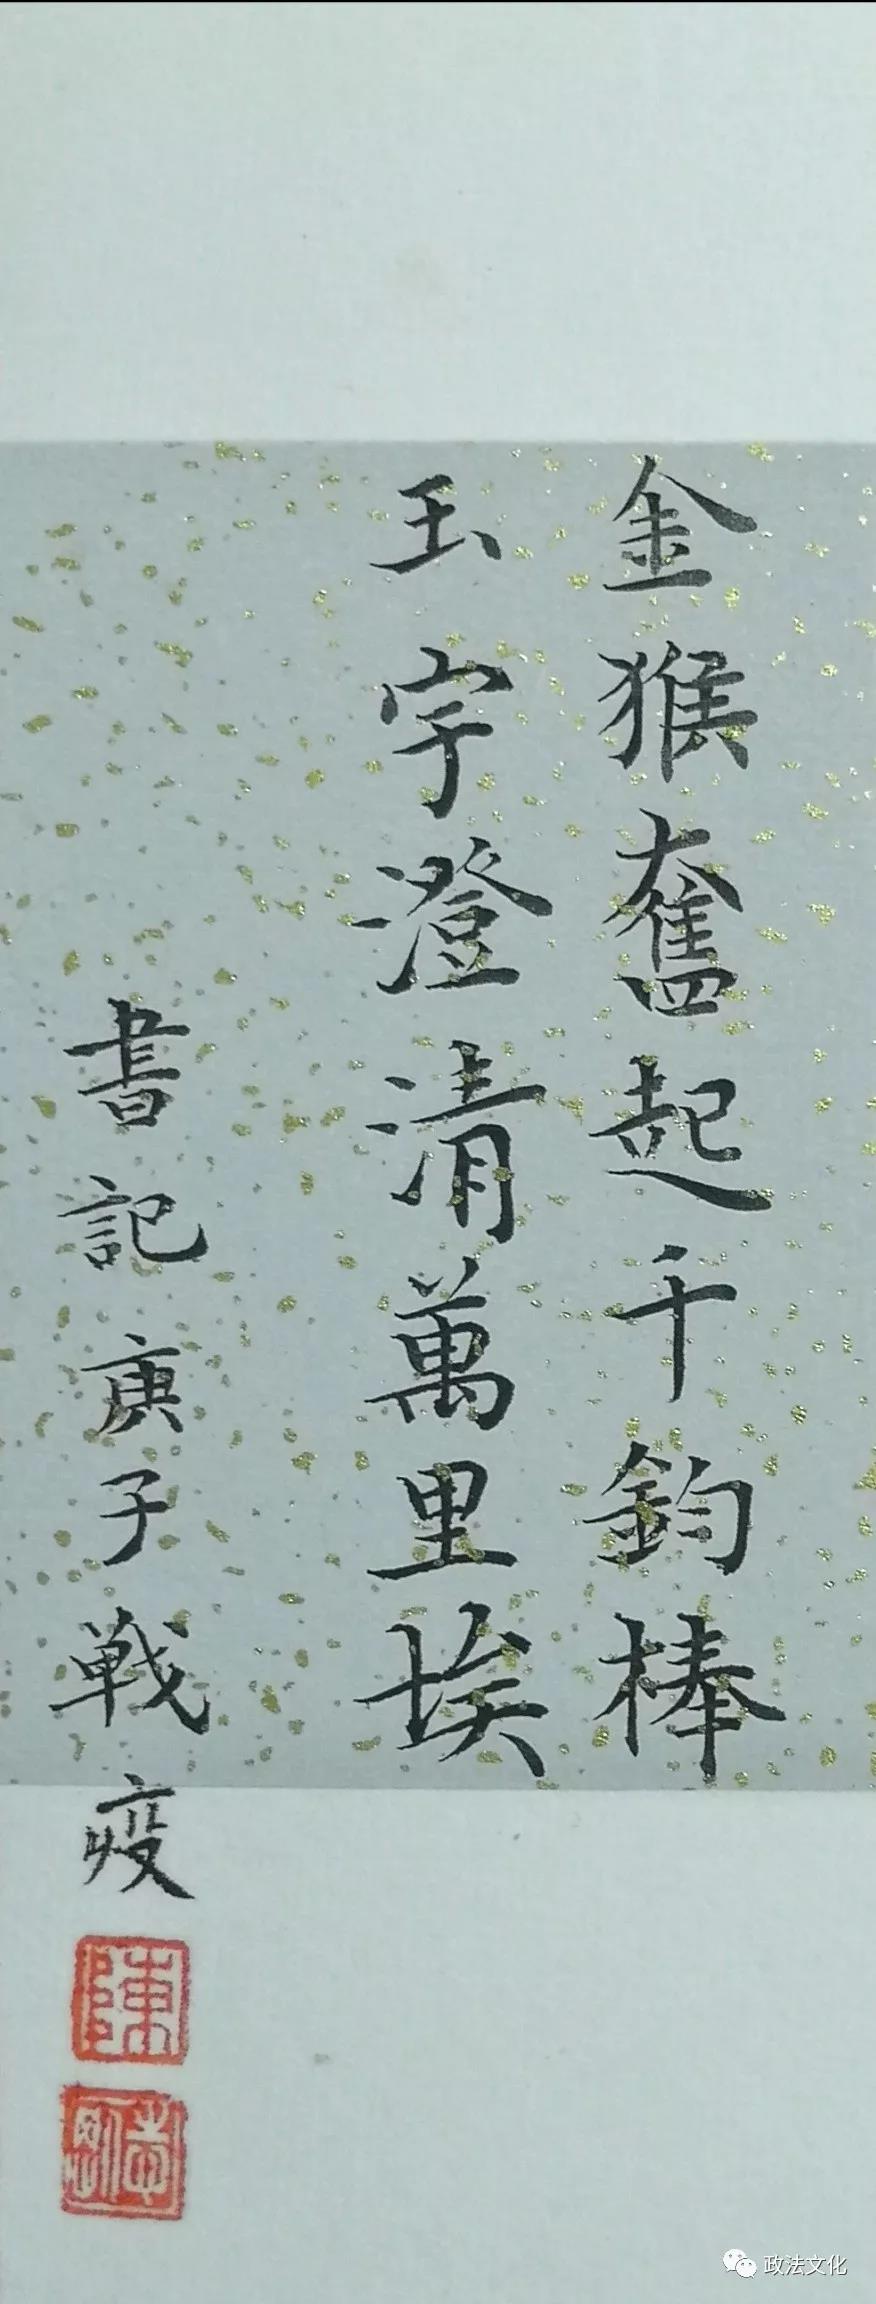 金猴奮起千鈞棒
玉宇澄清萬里埃
書記庚子戰疫
陳
政法文化